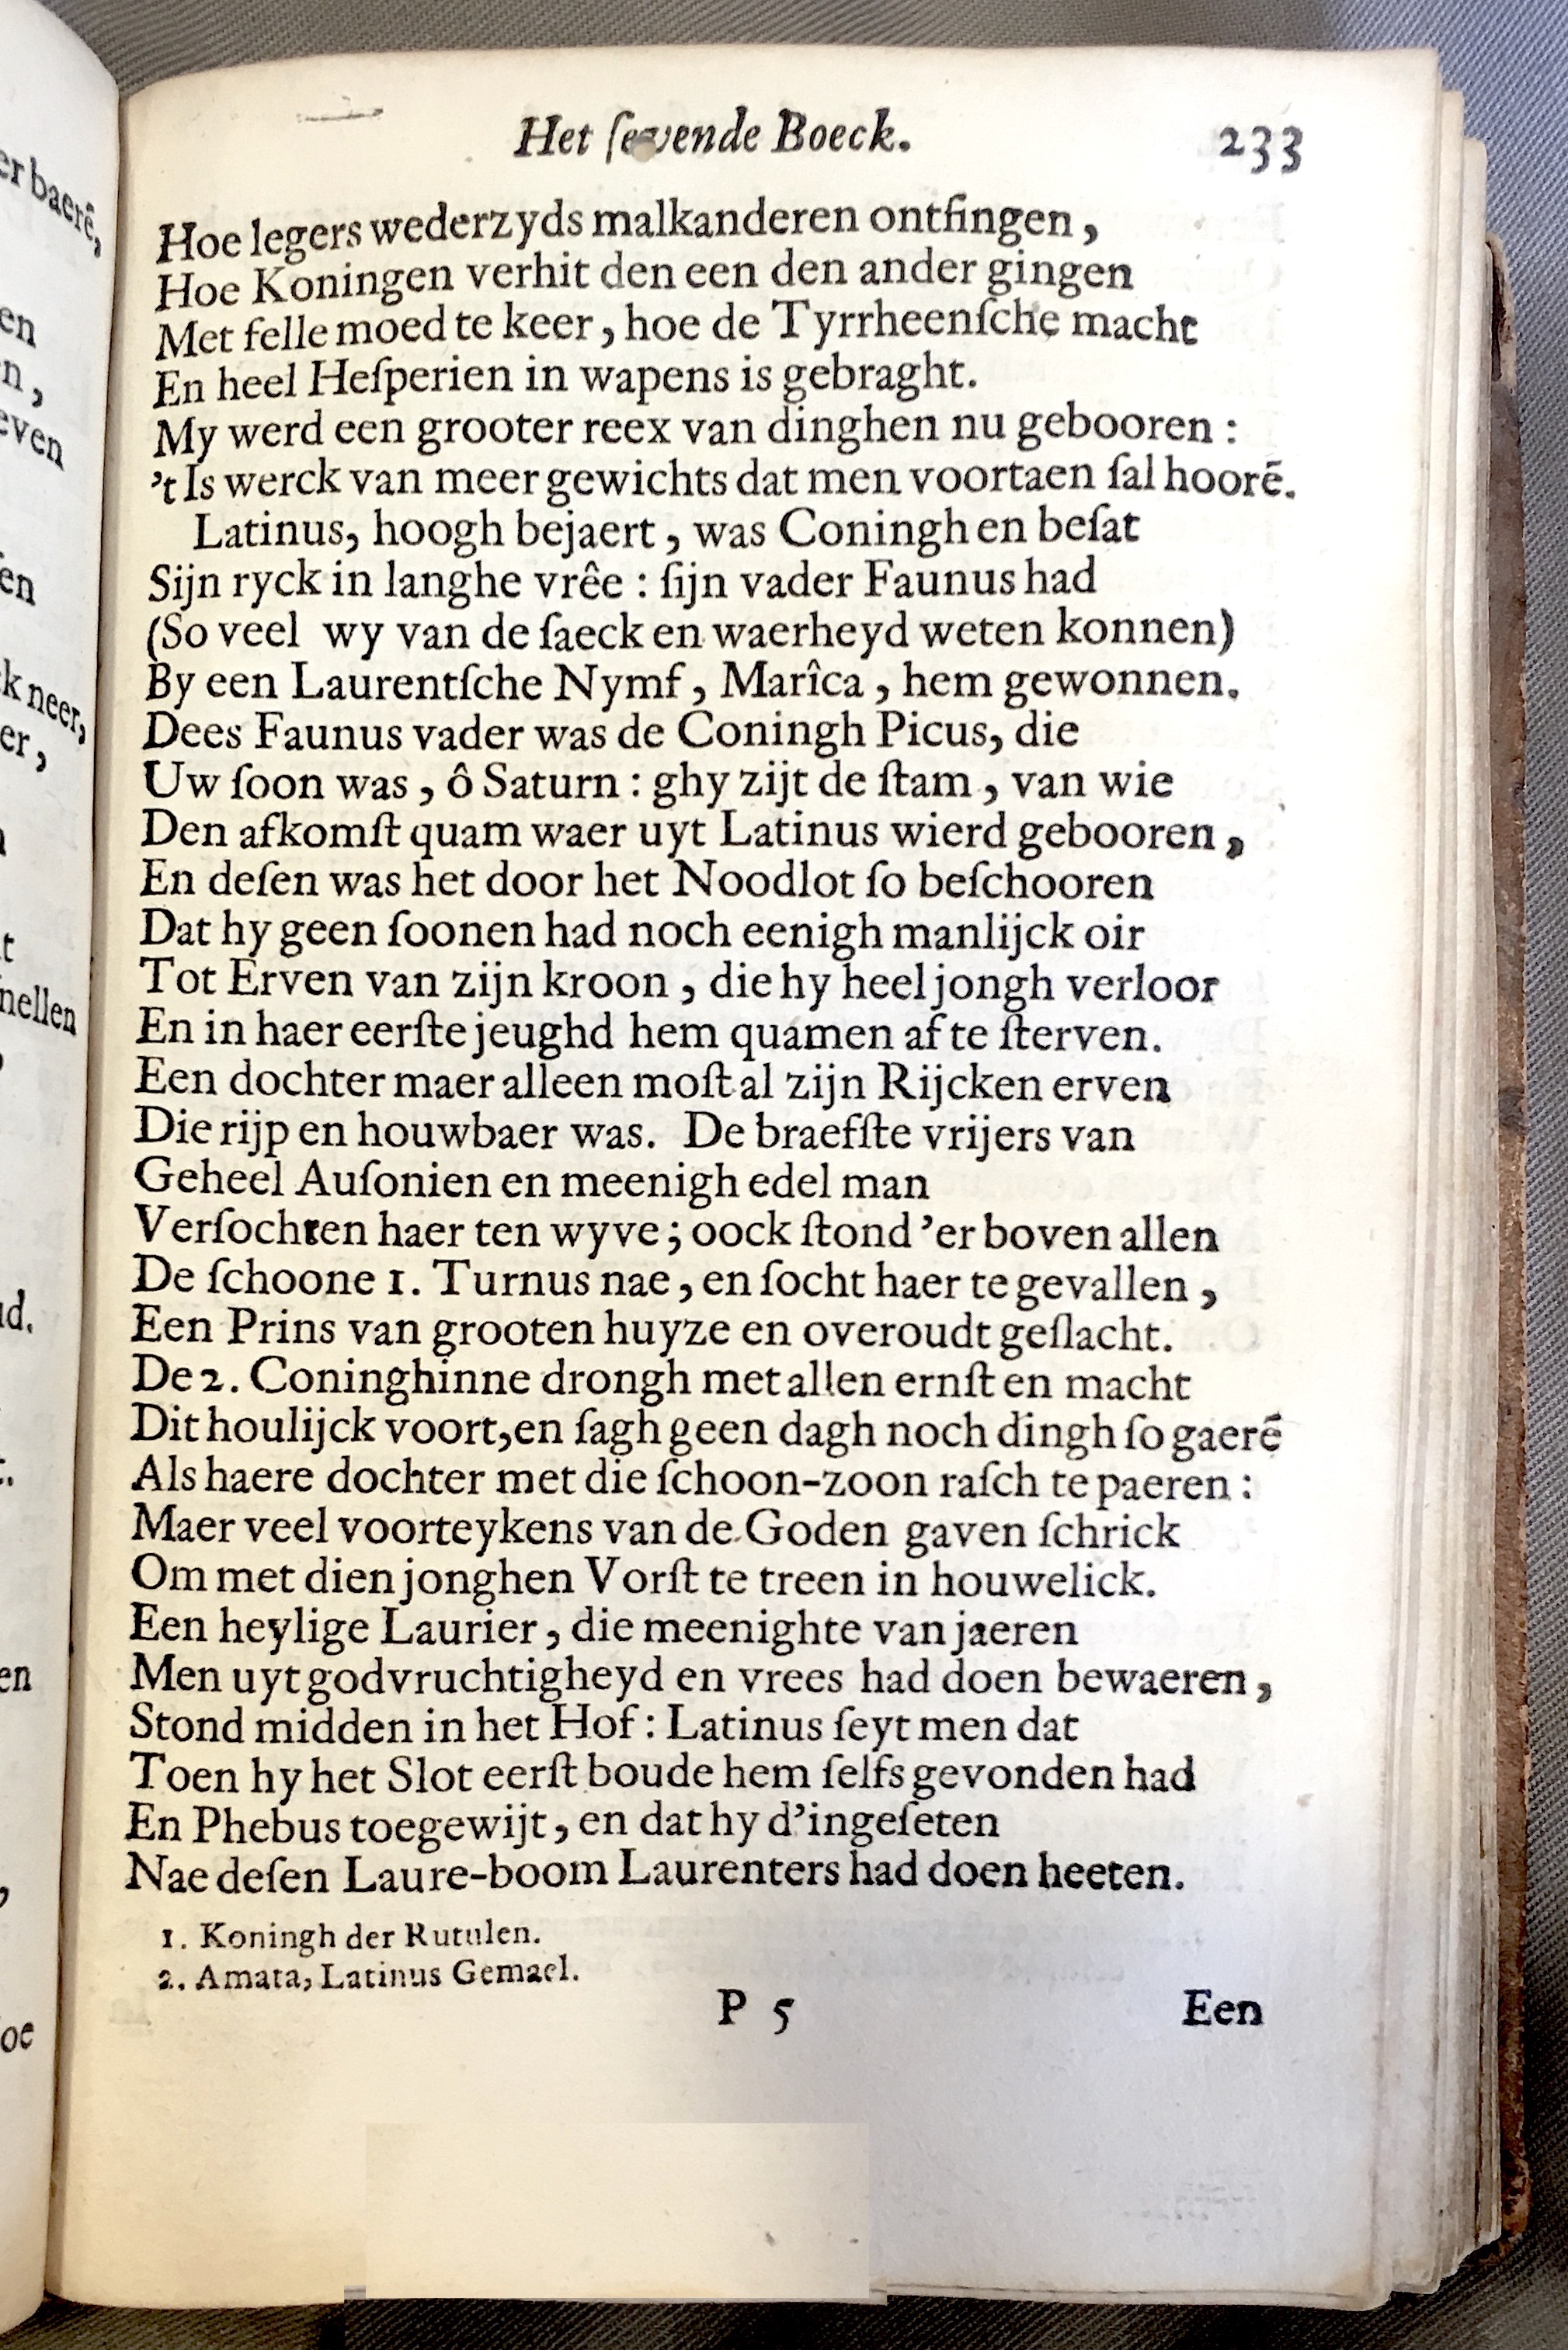 Het ſevende Boeck. 233
Hoe legers wederzyds malkanderen ontfingen,
Hoe Koningen verhit den een den ander gingen
Met felle moed te keer, hoe de Tyrrheenſche macht
En heel Heſperien in wapens is gebraght.
My werd een grooter reex van dinghen nu gebooren:
't Is werck van meer gewichts dat men voortaen ſal hoorē.
Latinus, hoogh bejaert, was Coningh en beſat
Sijn ryck in langhe vrêe: ſijn vader Faunus had
(So veel wy van de ſaeck en waerheyd weten konnen)
By een Laurentſche Nymf, Marîca, hem gewonnen.
Dees Faunus vader was de Coningh Picus, die
Uw ſoon was, ô Saturn: ghy zijt de ſtam, van wie
Den afkomſt quam waer uyt Latinus wierd gebooren,
En deſen was het door het Noodlot ſo beſchooren
Dat hy geen ſoonen had noch eenigh manlijck oir
Tot Erven van zijn kroon, die hy heel jongh verloor
En in haer eerſte jeughd hem quamen af te ſterven.
Een dochter maer alleen moſt al zijn Rijcken erven
Die rijp en houwbaer was. De braefſte vrijers van
Geheel Auſonien en meenigh edel man
Verſochten haer ten wyve; oock ſtond 'er boven allen
De ſchoone 1. Turnus nae, en ſocht haer te gevallen,
Een Prins van grooten huyze en overoudt geſlacht.
De 2. Coninghinne drongh met allen ernſt en macht
Dit houlijck voort, en ſagh geen dagh noch dingh ſo gaerē
Als haere dochter met die ſchoon-zoon raſch te paeren:
Maer veel voorteykens van de Goden gaven ſchrick
Om met dien jonghen Vorſt te treen in houwelick.
Een heylige Laurier, die meenighte van jaeren
Men uyt godvruchtigheyd en vrees had doen bewaeren,
Stond midden in het Hof: Latinus ſeyt men dat
Toen hy het Slot eerſt boude hem ſelfs gevonden had
En Phebus toegewijt, en dat hy d'ingeſeten
Nae deſen Laure-boom Laurenters had doen heeten.
1. Koningh der Rutulen.
2. Amata, Latinus Gemael.
P 5 Een